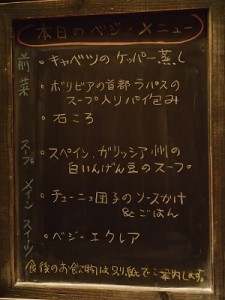 本日のベジ・メニュー
前菜
・キャベツのケッパー蒸し
・ボリビアの首都ラパスの
スープ入りパイ包み
・石ころ
スープ
・スペイン、ガリッシア州の
白いんげん豆のスープ。
メイン
・チューニョ団子のソースかけ
&ごはん
スイーツ
・ベジ・エクレア
食後のお飲物は別紙でご案内します。